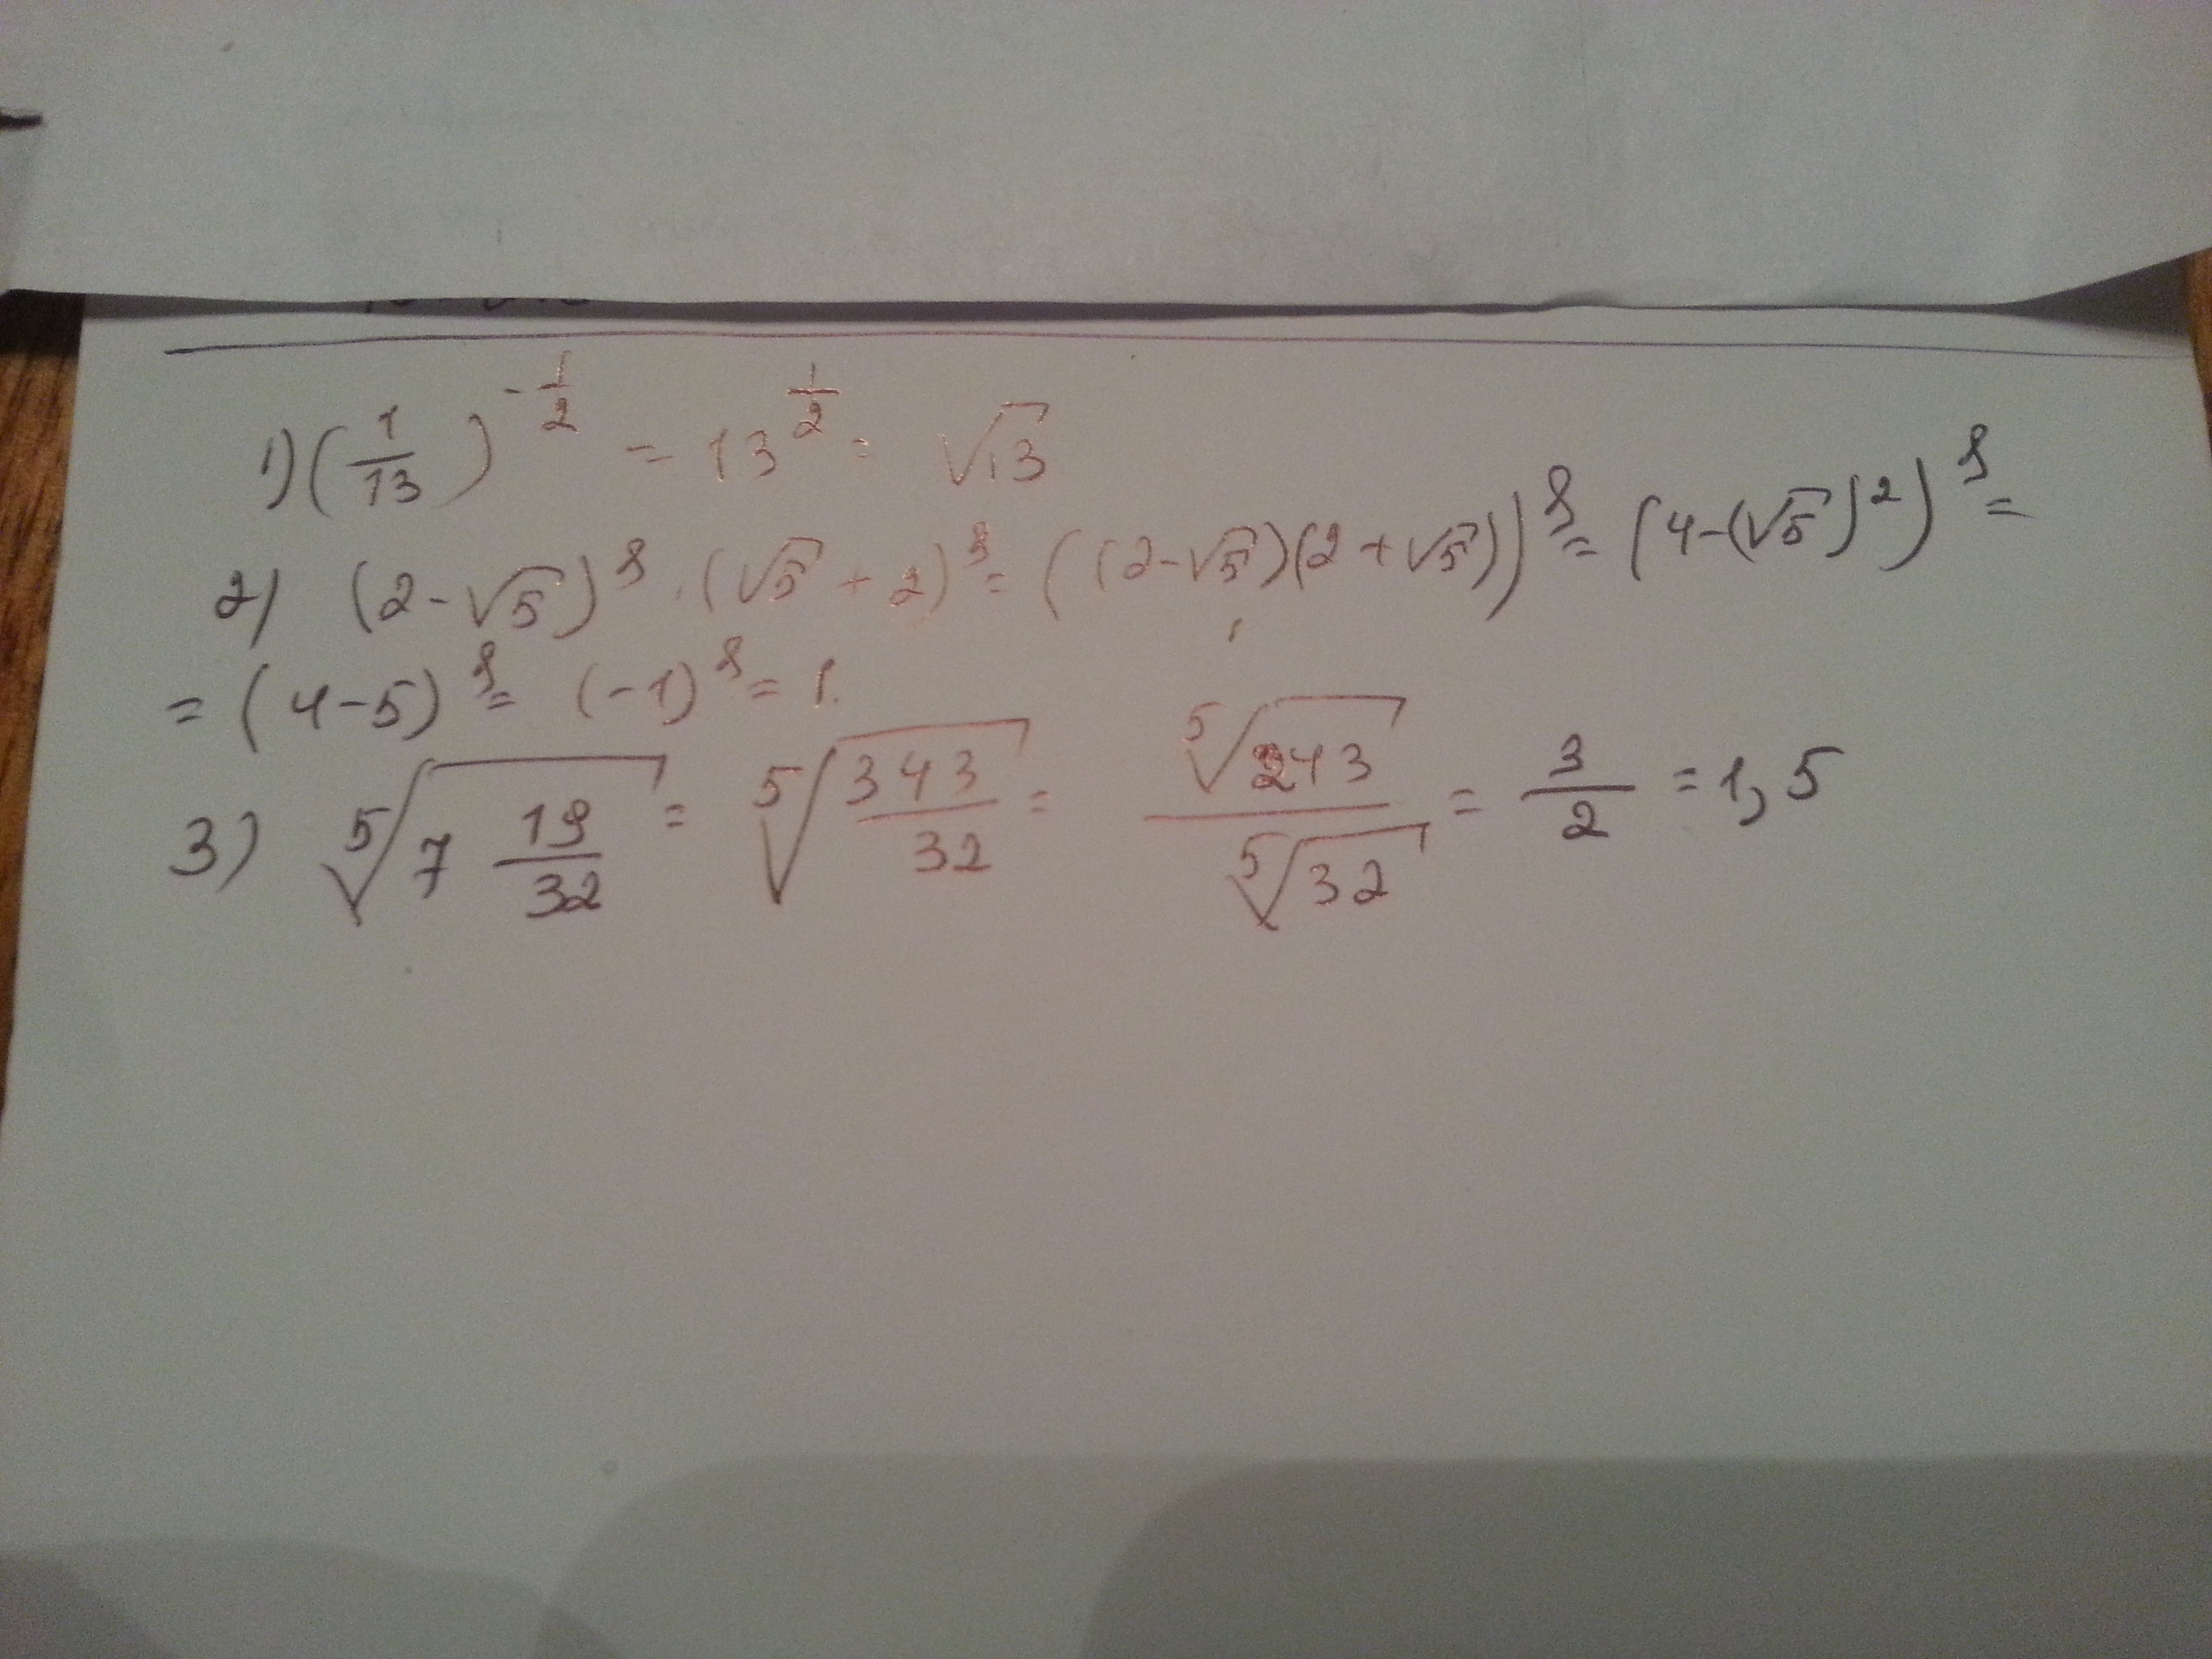 1) (1/13)^(-1/2) = 13^(1/2) = √13
2) (2-√5)^8 · (√5+2)^8 = ((2-√5)(2+√5))^8 = (4-(√5)^2)^8 =
= (4-5)^8 = (-1)^8 = 1.
3) ⁵√(7 19/32) = ⁵√(343/32) = ⁵√243/⁵√32 = 3/2 = 1,5